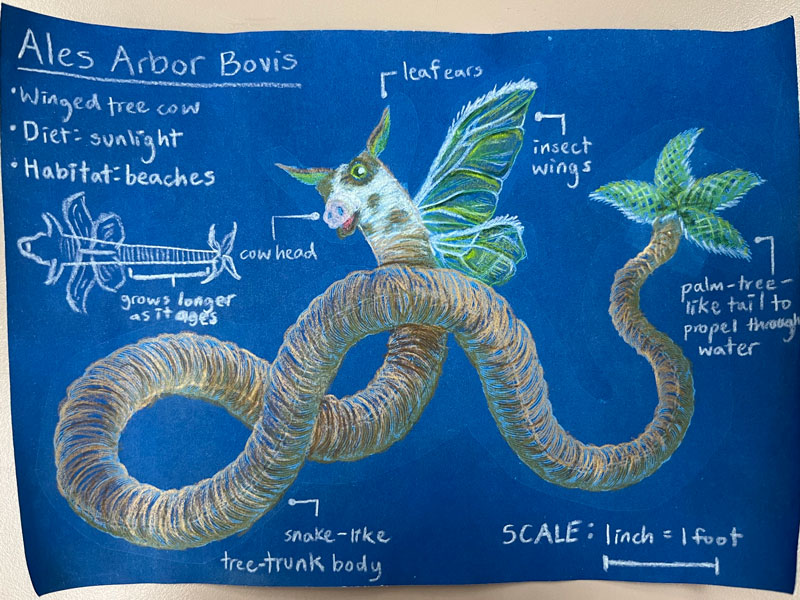 Ales Arbor Bovis
• Winged tree cow
• Diet: sunlight
• Habitat: beaches
grows longer
as it ages
leaf ears
insect
wings
cow head
palm-tree-
like tail to
propel through
water
snake-like
tree-trunk body
SCALE: 1 inch = 1 foot